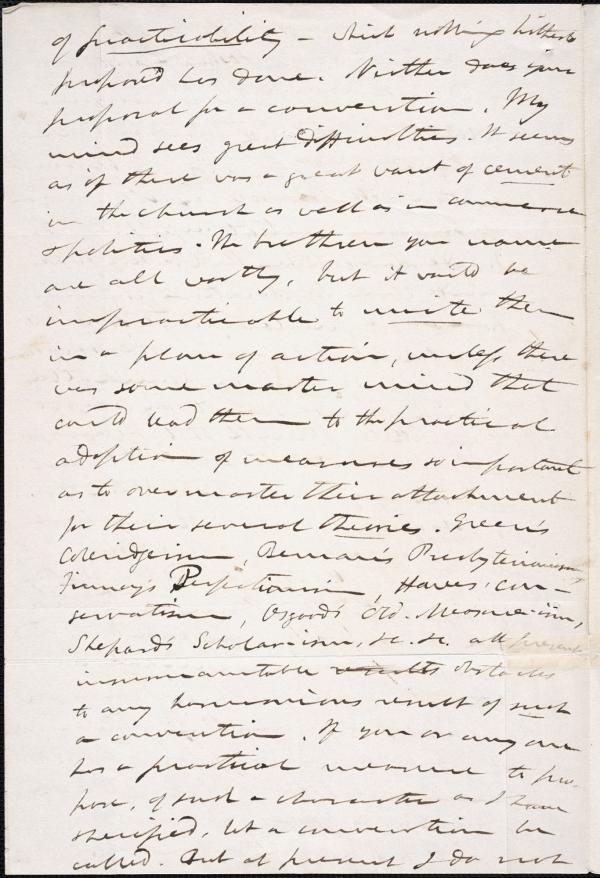 of practicability – which nothing hitherto
proposed has done. Neither does your
proposal for a convention. My
mind sees great difficulties. It seems
as if there was a great want of cement
in the church as well as in commerce
& politics. The brethren you name
are all worthy, but it would be
impracticable to unite them
in a plan of action, unless there
was some master mind that
could lead them to the practical
adoption of measures so important
as to overmaster their attachment
for their several theories. Green's
Coleridgeism, Beman's Presbyterianism
Finney's Perfectionism, Hawes' con-
servatism, Osgood's Old-Measure-ism,
Shepard's Scholarism, &c. &c. all present
insurmountable results obstacles
to any harmonious result of such
a convention. If you or any one
has a practical measure to pro-
pose, of such a character as I have
specified, let a convention be
called. But at present I do not